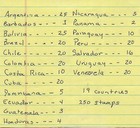 Argentina -- 25 Nicaragua -- 5
Barbados -- 3 Panama -- 2
Bolivia -- 25 Paraguay -- 10
Brazil -- 20 Peru -- 20
Chile -- 20 Salvador -- 16
Colombia -- 20 Uruguay -- 20
Costa Rica -- 10 Venezuela -- 20
Cuba -- 20
19 Countries
Ecuador -- 4 250 stamps
Guatemala -- 3
Honduras -- 4